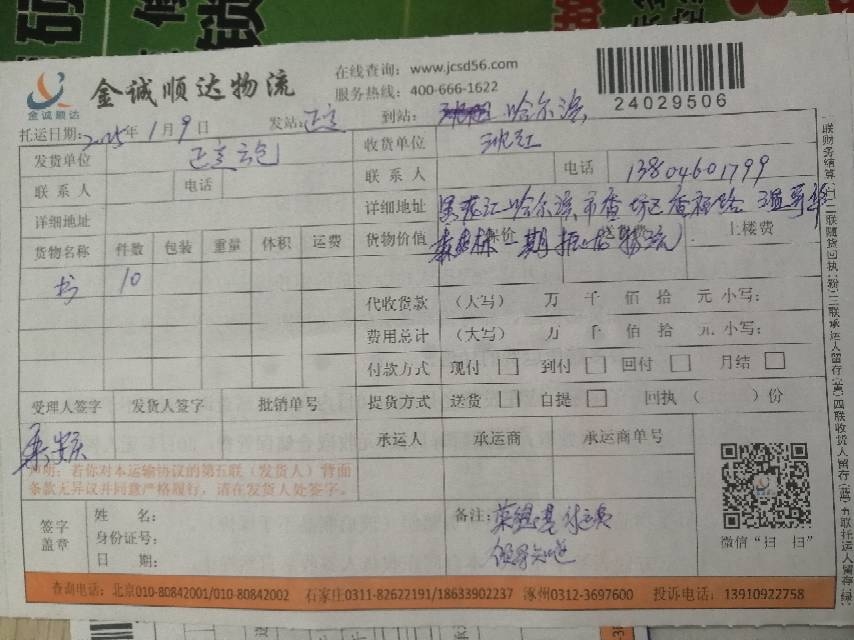 金诚顺达物流
金诚顺达
在线查询：www.jcsd56.com
服务热线：400-666-1622
24029506
托运日期：2025年1月9日 发站：正定 到站：哈尔滨
发货单位 正定云包 收货单位 沈红
联系人 电话 联系人 电话 13804601799
详细地址 详细地址 黑龙江哈尔滨市香坊区香福路
货物名称 件数 包装 重量 体积 运费 货物价值 保价 送货费 上楼费
一期 物流
书 10
代收货款 （大写） 万 千 佰 拾 元 小写：
费用总计 （大写） 万 千 佰 拾 元 小写：
付款方式 现付 到付 回付 月结
提货方式 送货 自提 回执（ ）份
受理人签字 发货人签字 批销单号 承运人 承运商 承运商单号
声明：若你对本运输协议的第五联（发货人）背面
条款无异议并同意严格履行，请在发货人处签字。
签字
盖章
姓 名：
身份证号：
日 期：
备注：
微信“扫一扫”
查询电话：北京010-80842001/010-80842002 石家庄0311-82622191/18633902237 涿州0312-3697600 投诉电话：13910922758